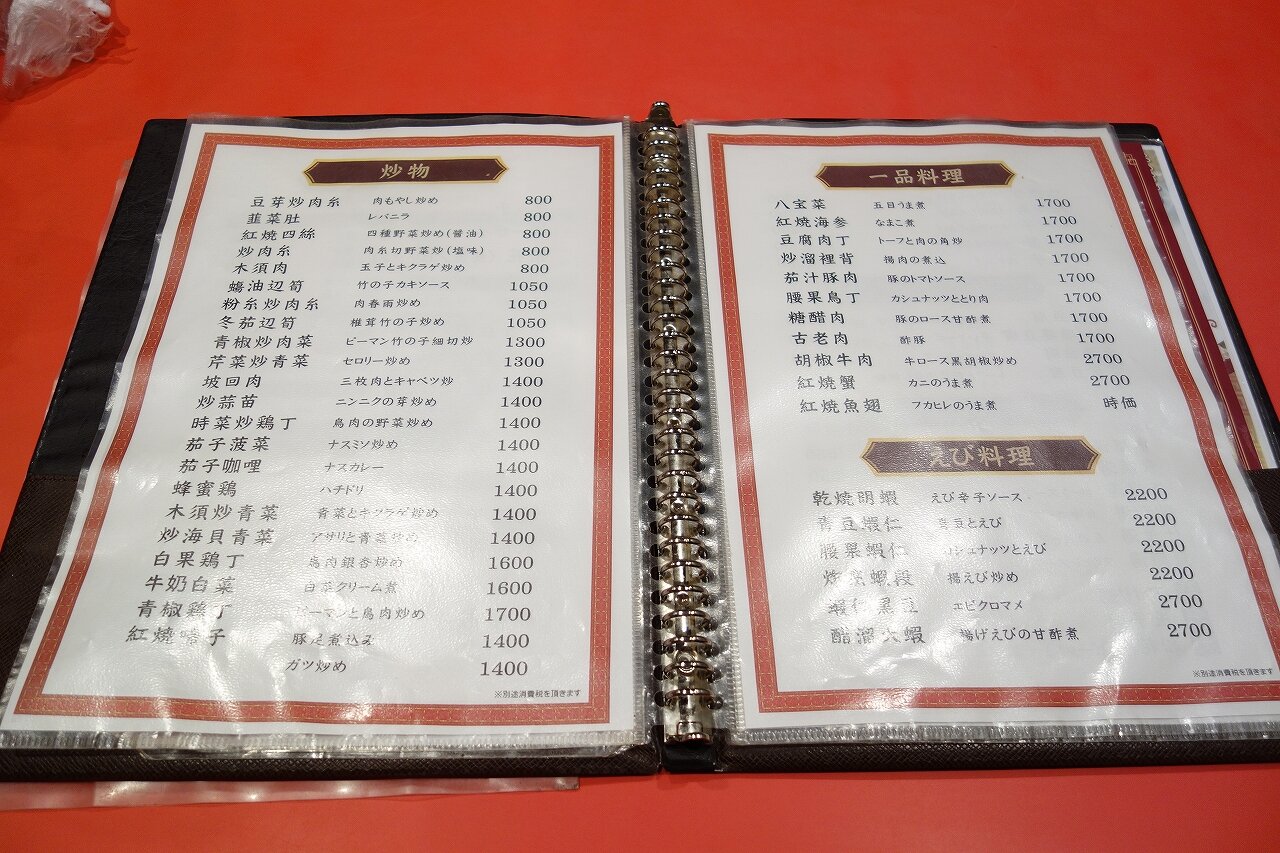 炒物
豆芽炒肉糸 肉もやし炒め 800
韮菜肚 レバニラ 800
紅焼四絲 四種野菜炒め(醤油) 800
炒肉糸 肉糸切野菜炒(塩味) 800
木須肉 玉子とキクラゲ炒め 800
蠣油辺筍 竹の子カキソース 1050
粉糸炒肉糸 肉春雨炒め 1050
冬茄辺筍 椎茸竹の子炒め 1050
青椒炒肉菜 ピーマン竹の子細切炒 1300
芹菜炒青菜 セロリー炒め 1300
坡回肉 三枚肉とキャベツ炒 1400
炒蒜苗 ニンニクの芽炒め 1400
時菜炒鶏丁 鳥肉の野菜炒め 1400
茄子菠菜 ナスミソ炒め 1400
茄子咖哩 ナスカレー 1400
蜂蜜鶏 ハチドリ 1400
木須炒青菜 青菜とキクラゲ炒め 1400
炒海貝青菜 アサリと青菜炒め 1400
白果鶏丁 鳥肉銀杏炒め 1600
牛奶白菜 白菜クリーム煮 1600
青椒鶏丁 ピーマンと鳥肉炒め 1700
紅焼 子 豚足煮込み 1400
ガツ炒め 1400
※別途消費税を頂きます
一品料理
八宝菜 五目うま煮 1700
紅焼海参 なまこ煮 1700
豆腐肉丁 トーフと肉の角炒 1700
炒溜裡背 揚肉の煮込 1700
茄汁豚肉 豚のトマトソース 1700
腰果鳥丁 カシュナッツととり肉 1700
糖醋肉 豚のロース甘酢煮 1700
古老肉 酢豚 1700
胡椒牛肉 牛ロース黒胡椒炒め 2700
紅焼蟹 カニのうま煮 2700
紅焼魚翅 フカヒレのうま煮 時価
えび料理
乾焼明蝦 えび辛子ソース 2200
青豆蝦仁 青豆とえび 2200
腰果蝦仁 カシュナッツとえび 2200
蝦段 揚えび炒め 2200
蝦仁黒豆 エビクロマメ 2700
醋溜大蝦 揚げえびの甘酢煮 2700
※別途消費税を頂きます